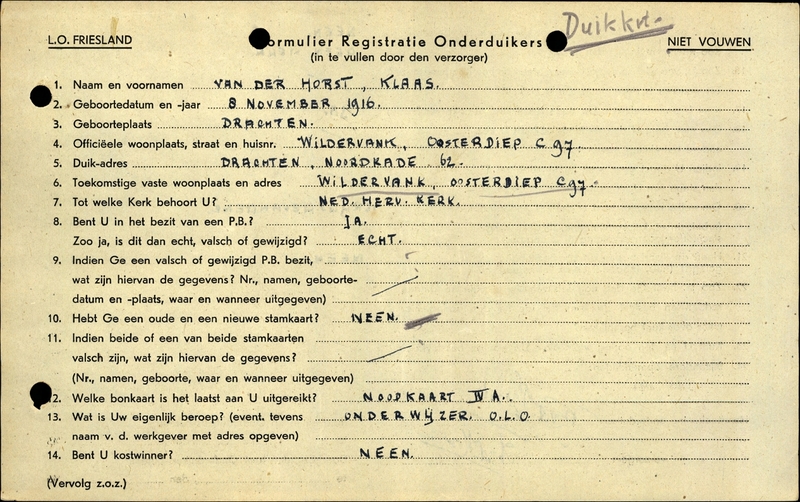 L.O. FRIESLAND
Formulier Registratie Onderduikers
Duikkrt.
NIET VOUWEN
(in te vullen door den verzorger)
1. Naam en voornamen VAN DER HORST, KLAAS.
2. Geboortedatum en -jaar 8 NOVEMBER 1916.
3. Geboorteplaats DRACHTEN.
4. Officiëele woonplaats, straat en huisnr. WILDERVANK, OOSTERDIEP C 97.
5. Duik-adres DRACHTEN, NOORDKADE 62.
6. Toekomstige vaste woonplaats en adres WILDERVANK, OOSTERDIEP C 97.
7. Tot welke Kerk behoort U? NED. HERV. KERK.
8. Bent U in het bezit van een P.B.? JA.
Zoo ja, is dit dan echt, valsch of gewijzigd? ECHT.
9. Indien Ge een valsch of gewijzigd P.B. bezit,
wat zijn hiervan de gegevens? Nr., namen, geboorte-
datum en -plaats, waar en wanneer uitgegeven)
10. Hebt Ge een oude en een nieuwe stamkaart? NEEN.
11. Indien beide of een van beide stamkaarten
valsch zijn, wat zijn hiervan de gegevens?
(Nr., namen, geboorte, waar en wanneer uitgegeven)
12. Welke bonkaart is het laatst aan U uitgereikt? NOODKAART IV A.
13. Wat is Uw eigenlijk beroep? (event. tevens ONDERWIJZER. O.L.O.
naam v. d. werkgever met adres opgeven)
14. Bent U kostwinner? NEEN.
(Vervolg z.o.z.)